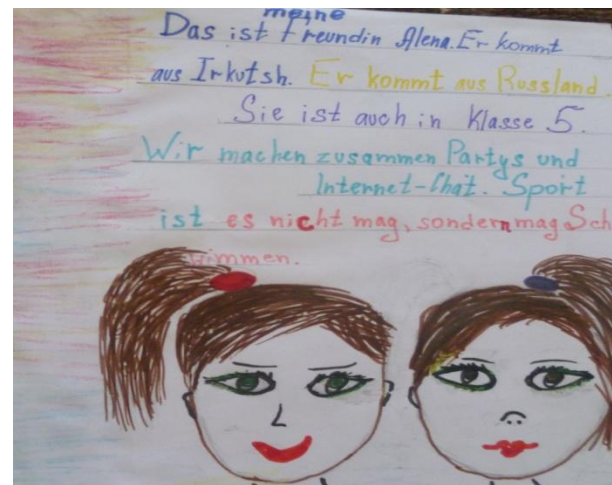 meine
Das ist Freundin Alena. Er kommt
aus Irkutsh. Er kommt aus Russland.
Sie ist auch in Klasse 5.
Wir machen zusammen Partys und
Internet-Chat. Sport
ist es nicht mag, sondern mag Sch
wimmen.